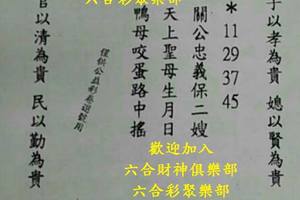 六合彩聚樂部
子以孝為貴 媳以賢為貴
*
11
29
37
45
關公忠義保二嫂
天上聖母生月日
鴨母咬蛋路中搖
僅供公益彩卷迷敎用
官以清為貴 民以勤為貴
歡迎加入
六合財神俱樂部
六合彩聚樂部